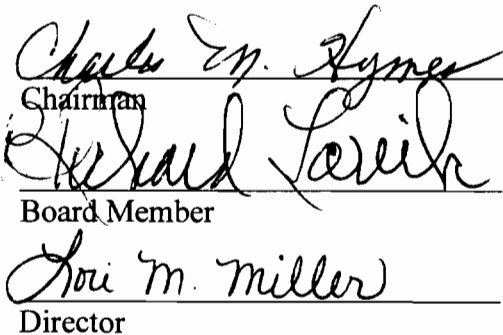 Charles M. Hymes
Chairman
Richard
Board Member
Lori M. Miller
Director